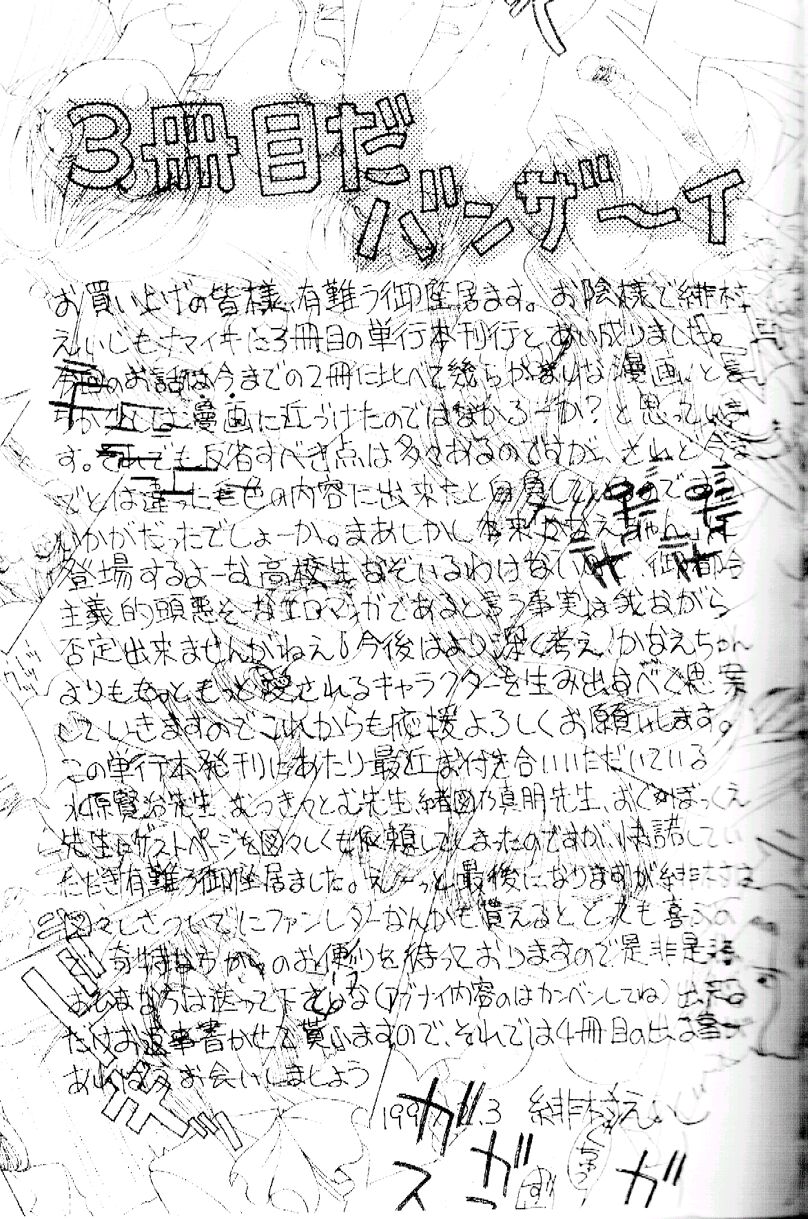 3冊目だ
バンザ〜イ
お買い上げの皆様、有難う御座居ます。お陰様で緋村
えいじもナマイキに3冊目の単行本刊行とあい成りました。
のお話は今までの2冊に比べて幾らかまりな漫画、と言
漫画に近づけたのではなかろーか?と思っていま
す。それでも反省すべき点は多々あるのですが、されど今ま
でとは違った色の内容に出来たと自負している
いかがだったでしょーか。まあしかし本来かなえちゃんに
登場するよーな高校生なぞいるわけない 御都合
主義的頭悪そーなエロマンガであると言う事実は我ながら
否定出来ませんがねえ。今後はより深く考え、かなえちゃん
よりももっともっと愛されるキャラクターを生み出すべく思案
していきますのでこれからも応援よろしくお願いします。
この単行本発刊にあたり最近お付き合いいただいている
水原賢治先生、むつきつとむ先生、緒図乃真朋先生、おぐぼっくえ
先生にゲストページを図々しくも依頼してしまったのですが、快諾してい
ただき有難う御座居ました。え〜っと最後になりますが緋村は
図々しさついでにファンレターなんかも貰えるととても喜ぶの
で、奇特な方からのお便りを待っておりますので是非是非
おひまな方は送って下さいな(アブナイ内容のはカンベンしてね)出来る
だけお返事書かせて貰いますので、それでは4冊目の出る事が
あればまたお会いしましょう
3 緋村えいじ
ガ
ガ
ス
ガ